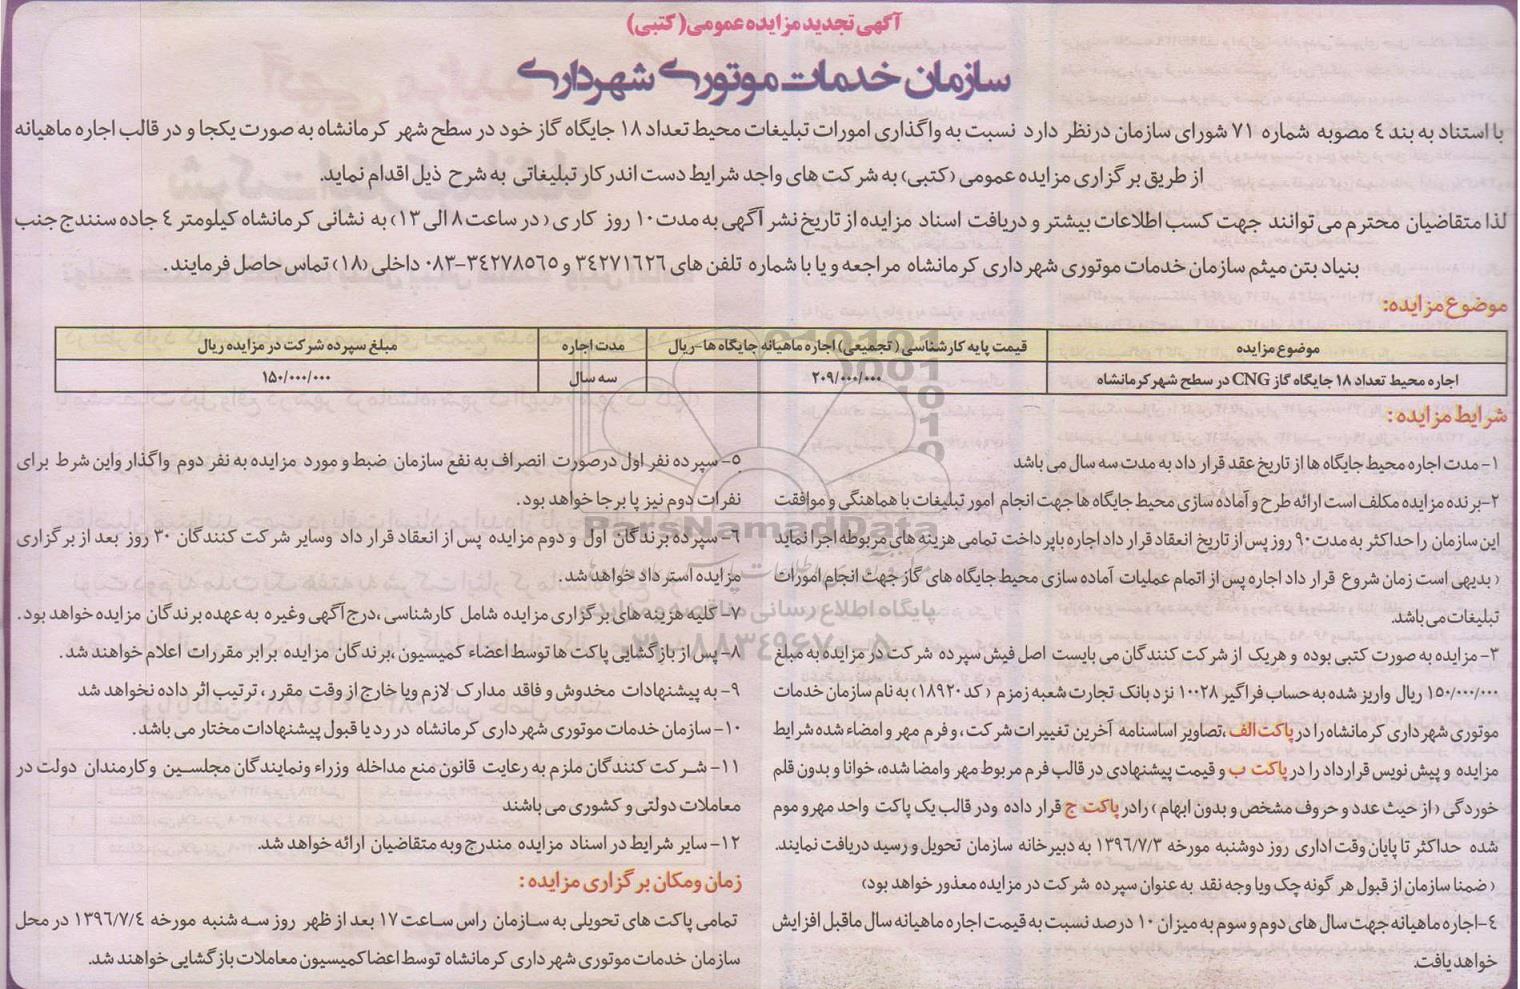 آگهی تجدید مزایده عمومی (کتبی)
سازمان خدمات موتوری شهرداری
با استناد به بند ٤ مصوبه شماره ۷۱ شورای سازمان درنظر دارد نسبت به واگذاری امورات تبلیغات محیط تعداد ۱۸ جایگاه گاز خود در سطح شهر کرمانشاه به صورت یکجا و در قالب اجاره ماهیانه
از طریق برگزاری مزایده عمومی (کتبی) به شرکت های واجد شرایط دست اندرکار تبلیغاتی به شرح ذیل اقدام نماید.
لذا متقاضیان محترم می توانند جهت کسب اطلاعات بیشتر و دریافت اسناد مزایده از تاریخ نشر آگهی به مدت ۱۰ روز کاری (در ساعت ۸ الی ۱۳) به نشانی کرمانشاه کیلومتر ٤ جاده سنندج جنب
بنیاد بتن میثم سازمان خدمات موتوری شهرداری کرمانشاه مراجعه و یا با شماره تلفن های ۳٤۲۷۱٦۲٦ و ۳٤۲۷۸۵٦۵-۰۸۳ داخلی (۱۸) تماس حاصل فرمایند.
موضوع مزایده:
موضوع مزایده | قیمت پایه کارشناسی (تجمیعی) اجاره ماهیانه جایگاه ها-ریال | مدت اجاره | مبلغ سپرده شرکت در مزایده ریال
اجاره محیط تعداد ۱۸ جایگاه گاز CNG در سطح شهر کرمانشاه | ۲۰۹/۰۰۰/۰۰۰ | سه سال | ۱۵۰/۰۰۰/۰۰۰
شرایط مزایده :
۱- مدت اجاره محیط جایگاه ها از تاریخ عقد قرار داد به مدت سه سال می باشد
۲-برنده مزایده مکلف است ارائه طرح و آماده سازی محیط جایگاه ها جهت انجام امور تبلیغات با هماهنگی و موافقت
این سازمان را حداکثر به مدت ۹۰ روز پس از تاریخ انعقاد قرار داد اجاره باپرداخت تمامی هزینه های مربوطه اجرا نماید
( بدیهی است زمان شروع قرار داد اجاره پس از اتمام عملیات آماده سازی محیط جایگاه های گاز جهت انجام امورات
تبلیغات می باشد.
۳- مزایده به صورت کتبی بوده و هریک از شرکت کنندگان می بایست اصل فیش سپرده شرکت در مزایده به مبلغ
۱۵۰/۰۰۰/۰۰۰ ریال واریز شده به حساب فراگیر ۱۰۰۲۸ نزد بانک تجارت شعبه زمزم (کد ۱۸۹۲۰) به نام سازمان خدمات
موتوری شهرداری کرمانشاه را در پاکت الف ،تصاویر اساسنامه آخرین تغییرات شرکت ، و فرم مهر و امضاء شده شرایط
مزایده و پیش نویس قرارداد را در پاکت ب و قیمت پیشنهادی در قالب فرم مربوط مهر وامضا شده، خوانا و بدون قلم
خوردگی (از حیث عدد و حروف مشخص و بدون ابهام ) رادر پاکت ج قرار داده ودر قالب یک پاکت واحد مهرو موم
شده حداکثر تا پایان وقت اداری روز دوشنبه مورخه ۱۳۹٦/۷/۳ به دبیرخانه سازمان تحویل و رسید دریافت نمایند.
( ضمنا سازمان از قبول هر گونه چک ویا وجه نقد به عنوان سپرده شرکت در مزایده معذور خواهد بود)
٤-اجاره ماهیانه جهت سال های دوم و سوم به میزان ۱۰ درصد نسبت به قیمت اجاره ماهیانه سال ماقبل افزایش
خواهد یافت.
۵- سپرده نفر اول درصورت انصراف به نفع سازمان ضبط و مورد مزایده به نفر دوم واگذار واین شرط برای
نفرات دوم نیز پا برجا خواهد بود.
٦- سپرده برندگان اول و دوم مزایده پس از انعقاد قرار داد وسایر شرکت کنندگان ۳۰ روز بعد از برگزاری
مزایده استرداد خواهد شد.
۷- کلیه هزینه های برگزاری مزایده شامل کارشناسی ،درج آگهی وغیره به عهده برندگان مزایده خواهد بود.
۸- پس از بازگشایی پاکت ها توسط اعضاء کمیسیون ،برندگان مزایده برابر مقررات اعلام خواهند شد.
۹- به پیشنهادات مخدوش و فاقد مدارک لازم ویا خارج از وقت مقرر ، ترتیب اثر داده نخواهد شد
۱۰- سازمان خدمات موتوری شهرداری کرمانشاه در رد یا قبول پیشنهادات مختار می باشد.
۱۱- شرکت کنندگان ملزم به رعایت قانون منع مداخله وزراء ونمایندگان مجلسین وکارمندان دولت در
معاملات دولتی و کشوری می باشند
۱۲- سایر شرایط در اسناد مزایده مندرج وبه متقاضیان ارائه خواهد شد.
زمان ومکان برگزاری مزایده :
تمامی پاکت های تحویلی به سازمان راس ساعت ۱۷ بعد از ظهر روز سه شنبه مورخه ۱۳۹٦/۷/٤ در محل
سازمان خدمات موتوری شهرداری کرمانشاه توسط اعضا کمیسیون معاملات بازگشایی خواهند شد.
ParsNamadData
پایگاه اطلاع رسانی مناقصه و مزایده
۰۲۱-۸۸۳٤۹٦۷۰-۵